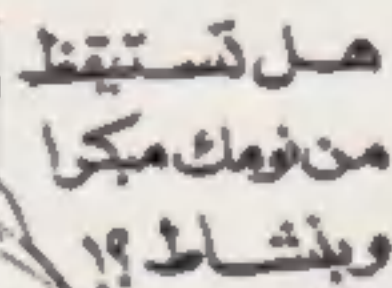 هل تستيقظ
من نومك مبكرا
وبنشاط ؟!